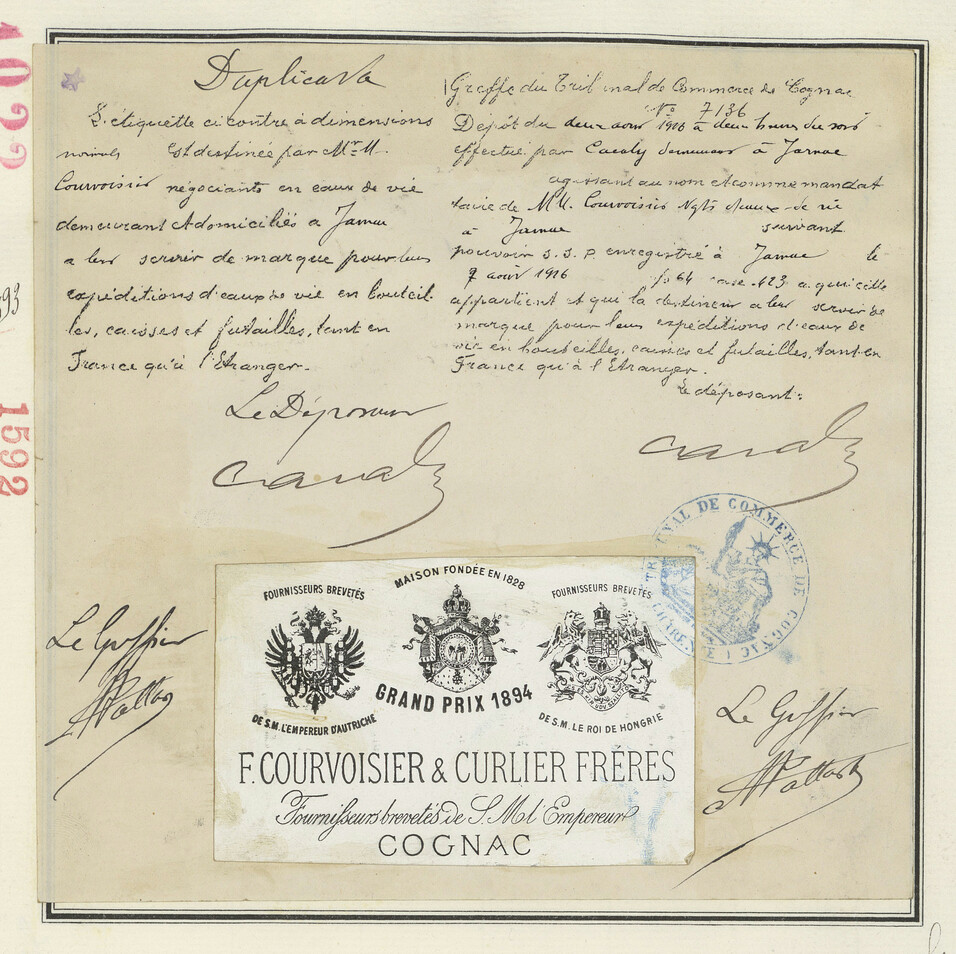 Duplicata
L'étiquette ci contre à dimensions
normales Est destinée par Mrs M.
Courvoisier négociants en eaux de vie
demeurant et domiciliés a Jarnac
a leur servir de marque pour leurs
expéditions d'eaux de vie en bouteil-
les, caisses et futailles, tant en
France qu'à l'Etranger.
Le Déposant
Greffe du Tribunal de Commerce de Cognac
No 7136
Dépôt du deux aout 1916 à deux heures du soir
effectué par demeurant à Jarnac
agissant au nom et comme mandat
taire de M.M. Courvoisier Ngts d'eaux-de vie
à Jarnac suivant
pouvoir s.s.p enregistré à Jarnac le
aout 1916 fo 64 case 423 a qui cette
appartient et qui la destinent a leur servir de
marque pour leurs expéditions d'eaux de
vie en bouteilles, caisses et futailles, tant en
France qu'à l'Etranger.
Le déposant:
TRIBUNAL DE COMMERCE DE COGNAC
Le Greffier
Le Greffier
FOURNISSEURS BREVETÉS
DE S.M. L'EMPEREUR D'AUTRICHE
MAISON FONDÉE EN 1828
GRAND PRIX 1894
FOURNISSEURS BREVETÉS
DE S.M. LE ROI DE HONGRIE
F. COURVOISIER & CURLIER FRÉRES
Fournisseurs brevetés de S. M. l'Empereur
COGNAC
1592